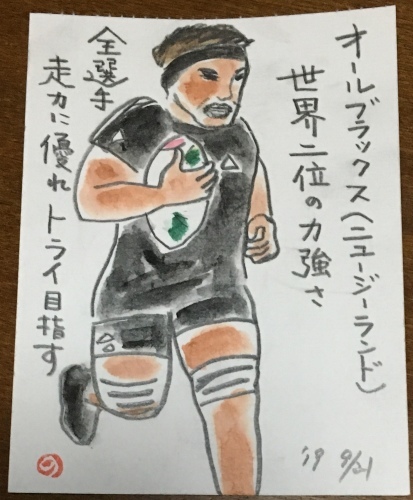 オールブラックス(ニュージーランド)
世界二位の力強さ
全選手
走力に優れトライ目指す
'19 9/21
の